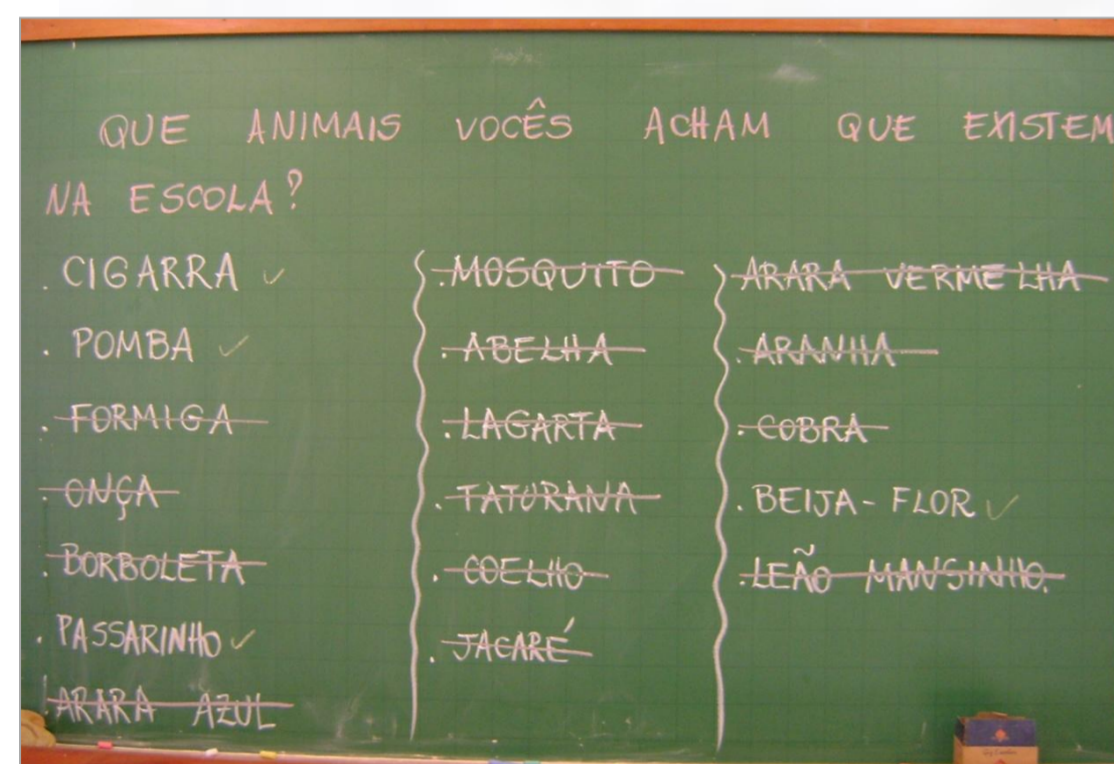 QUE ANIMAIS VOCÊS ACHAM QUE EXISTEM
NA ESCOLA?
. CIGARRA ✓
. POMBA ✓
. FORMIGA
. ONÇA
. BORBOLETA
. PASSARINHO ✓
. ARARA AZUL
. MOSQUITO
. ABELHA
. LAGARTA
. TATURANA
. COELHO
. JACARÉ
. ARARA VERMELHA
. ARANHA
. COBRA
. BEIJA-FLOR ✓
. LEÃO MANSINHO.